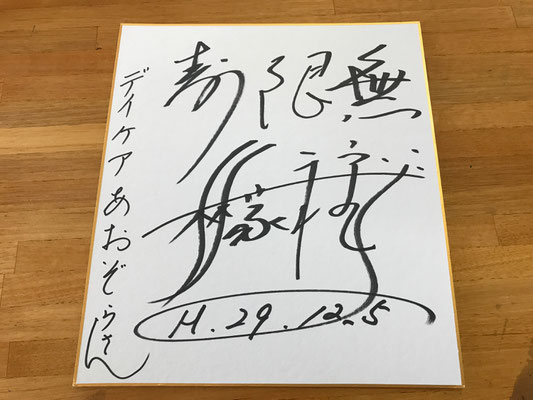 寿限無
林家
H.29.12.5
デイケアあおぞらさん